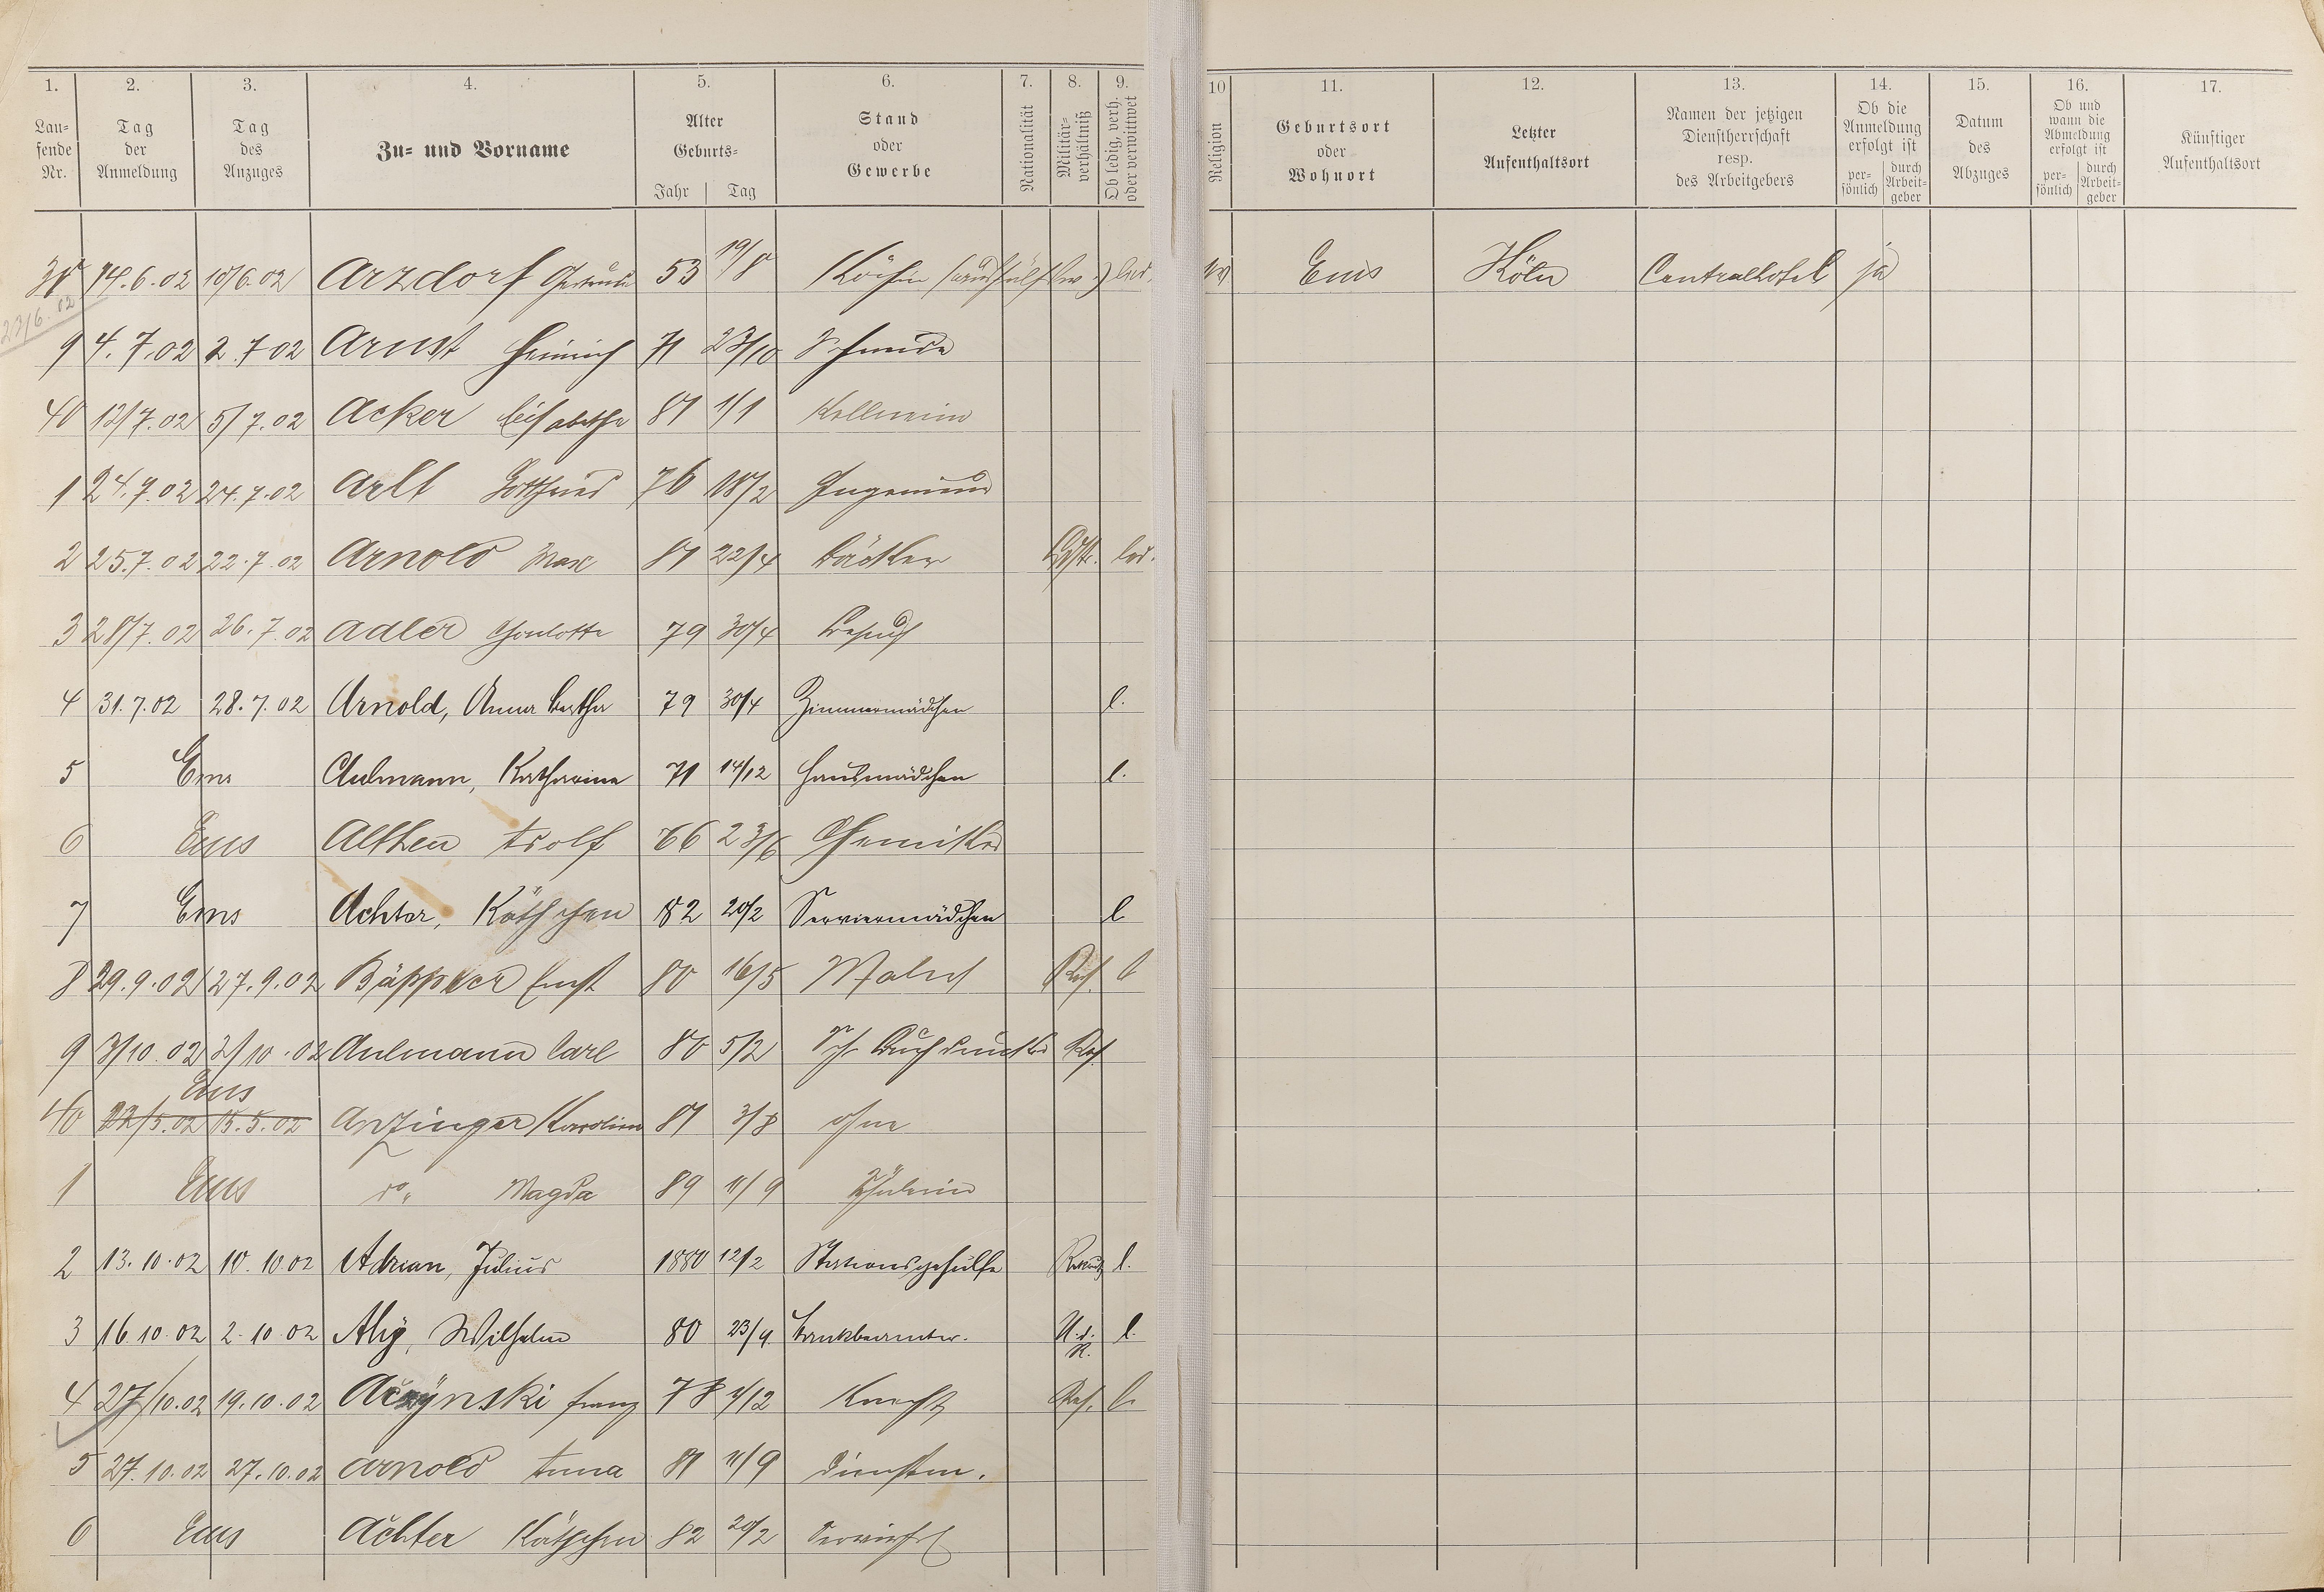 1. 2. 3. 4. 5. 6. 7. 8. 9. 10 11. 12. 13. 14. 15. 16. 17.
Lau-
fende
Nr.
Tag
der
Anmeldung
Tag
des
Anzuges
Zu- und Vorname
Alter
Geburts-
Jahr Tag
Stand
oder
Gewerbe
Nationalität
Militär-
verhältniß
Ob ledig, verh.
oder verwittwet
Religion
Geburtsort
oder
Wohnort
Letzter
Aufenthaltsort
Namen der jetzigen
Dienstherrschaft
resp.
des Arbeitgebers
Ob die
Anmeldung
erfolgt ist
per-
sönlich
durch
Arbeit-
geber
Datum
des
Abzuges
Ob und
wann die
Abmeldung
erfolgt ist
per-
sönlich
durch
Arbeit-
geber
Künftiger
Aufenthaltsort
38 14.6.02 10/6.02 Arzdorf Gertrude 53 19/8 Köchin led. Ems Köln Centralhotel ja
23/6.02
9 4.7.02 2.7.02 Arnst Heinrich 71 23/10
40 12/7.02 5/7.02 Acker Elisabethe 81 1/1 Kellnerin
1 24.7.02 24.7.02 Arlt Gottfried 76 18/2 Ingenieur
2 25.7.02 22.7.02 Arnold Max 81 22/4 Ldstr. led.
3 28/7.02 26.7.02 Adler Charlotte 79 30/4 Besuch
4 31.7.02 28.7.02 Arnold, Anna Bertha 79 30/4 Zimmermädchen l.
5 Ems Aulmann, Katharina 71 14/12 Hausmädchen l.
6 Ems Althen Adolf 66 23/6 Chemiker
7 Ems Achter, Käthchen 82 20/2 Serviermädchen l
8 29.9.02 27.9.02 Bäppler Ernst 80 16/5 Res. l
9 3/10.02 2/10.02 Aulmann Carl 80 5/2 Buchdrucker Res.
Ems
22/5.02 15.5.02 Anzinger Karoline 81 3/8 ohne
1 Ems do. Magda 89 11/9 Schülerin
2 13.10.02 10.10.02 Adrian, Julius 1880 12/2 Stationsgehülfe l.
3 16.10.02 2.10.02 Alÿ, Wilhelm 80 23/9 Bankbeamter. U.d.R. l.
4 27/10.02 19.10.02 Aczÿnski Franz 78 4/12 Knecht Res. l.
5 27.10.02 27.10.02 Arnold Anna 81 11/9 Dienstm.
6 Ems Achter Käthchen 82 20/2